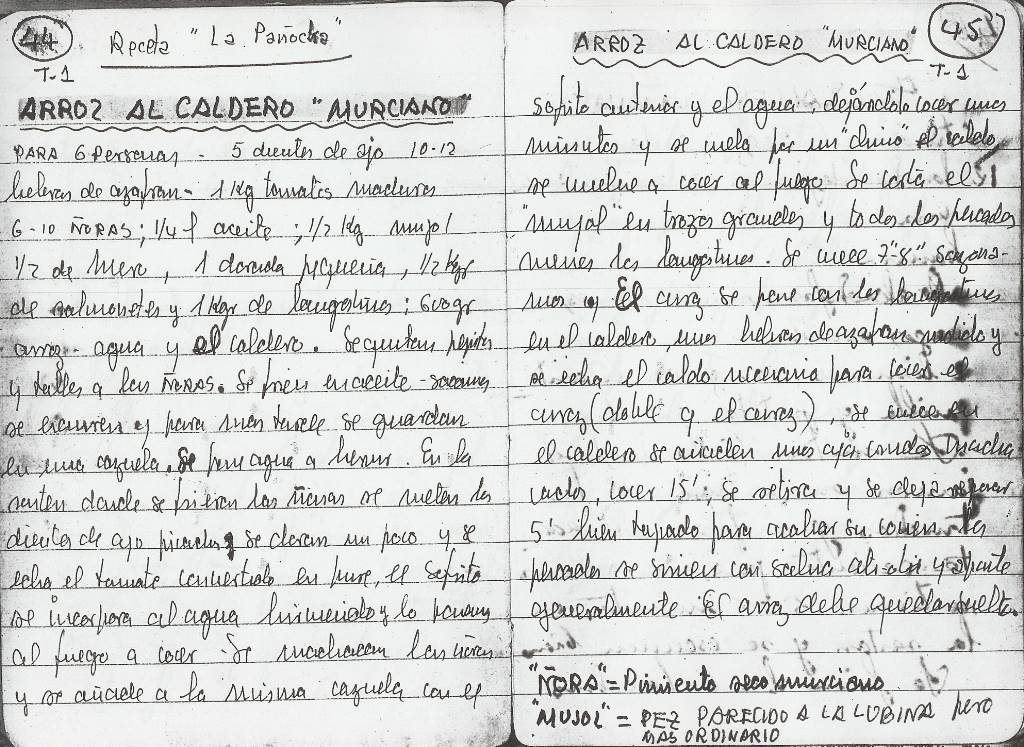 44
T-1
Receta "La Panocha"
ARROZ AL CALDERO "MURCIANO"
PARA 6 Personas - 5 dientes de ajo 10-12
hebras de azafran - 1 Kg tomates maduros
6-10 ÑORAS; 1/4 l aceite; 1/2 Kg mujol
1/2 de Mero, 1 dorada pequeña, 1/2 Kgr
de salmonetes y 1 Kgr de langostinos; 600 gr
arroz - agua y el caldero. Se quitan pepitas
y tallos a las ÑORAS. Se frien en aceite - sacamos
se escurren y para mas tarde se guardan
en una cazuela. Se pone agua a hervir. En la
sarten donde se frieron las ñoras se meten los
dientes de ajo picados, se doran un poco y se
echa el tomate convertido en pure, el sofrito
se incorpora al agua hirviendo y lo ponemos
al fuego a cocer - Se machacan las ñoras
y se añade a la misma cazuela con el
45
T-1
ARROZ AL CALDERO "MURCIANO"
sofrito anterior y el agua; dejándolo cocer unos
minutos y se cuela por un "chino" el caldo
se vuelve a cocer al fuego Se corta el
"mujol" en trozos grandes y todos los pescados
menos los langostinos. Se cuece 7"-8". Sazona-
mos y El arroz se pone con los langostinos
en el caldero, unas hebras de azafran molido y
se echa el caldo necesario para cocer el
arroz (doble q el arroz), se cuece en
el caldero se añaden unos ajos crudos machaca
cados, cocer 15'; se retira y se deja reposar
5' bien tapado para acabar su coccion. Los
pescados se sirven con salsa ali-oli y aparte
generalmente. El arroz debe quedar suelto.
"ÑORA" = Pimiento seco murciano
"MUJOL" = PEZ PARECIDO A LA LUBINA pero
MAS ORDINARIO